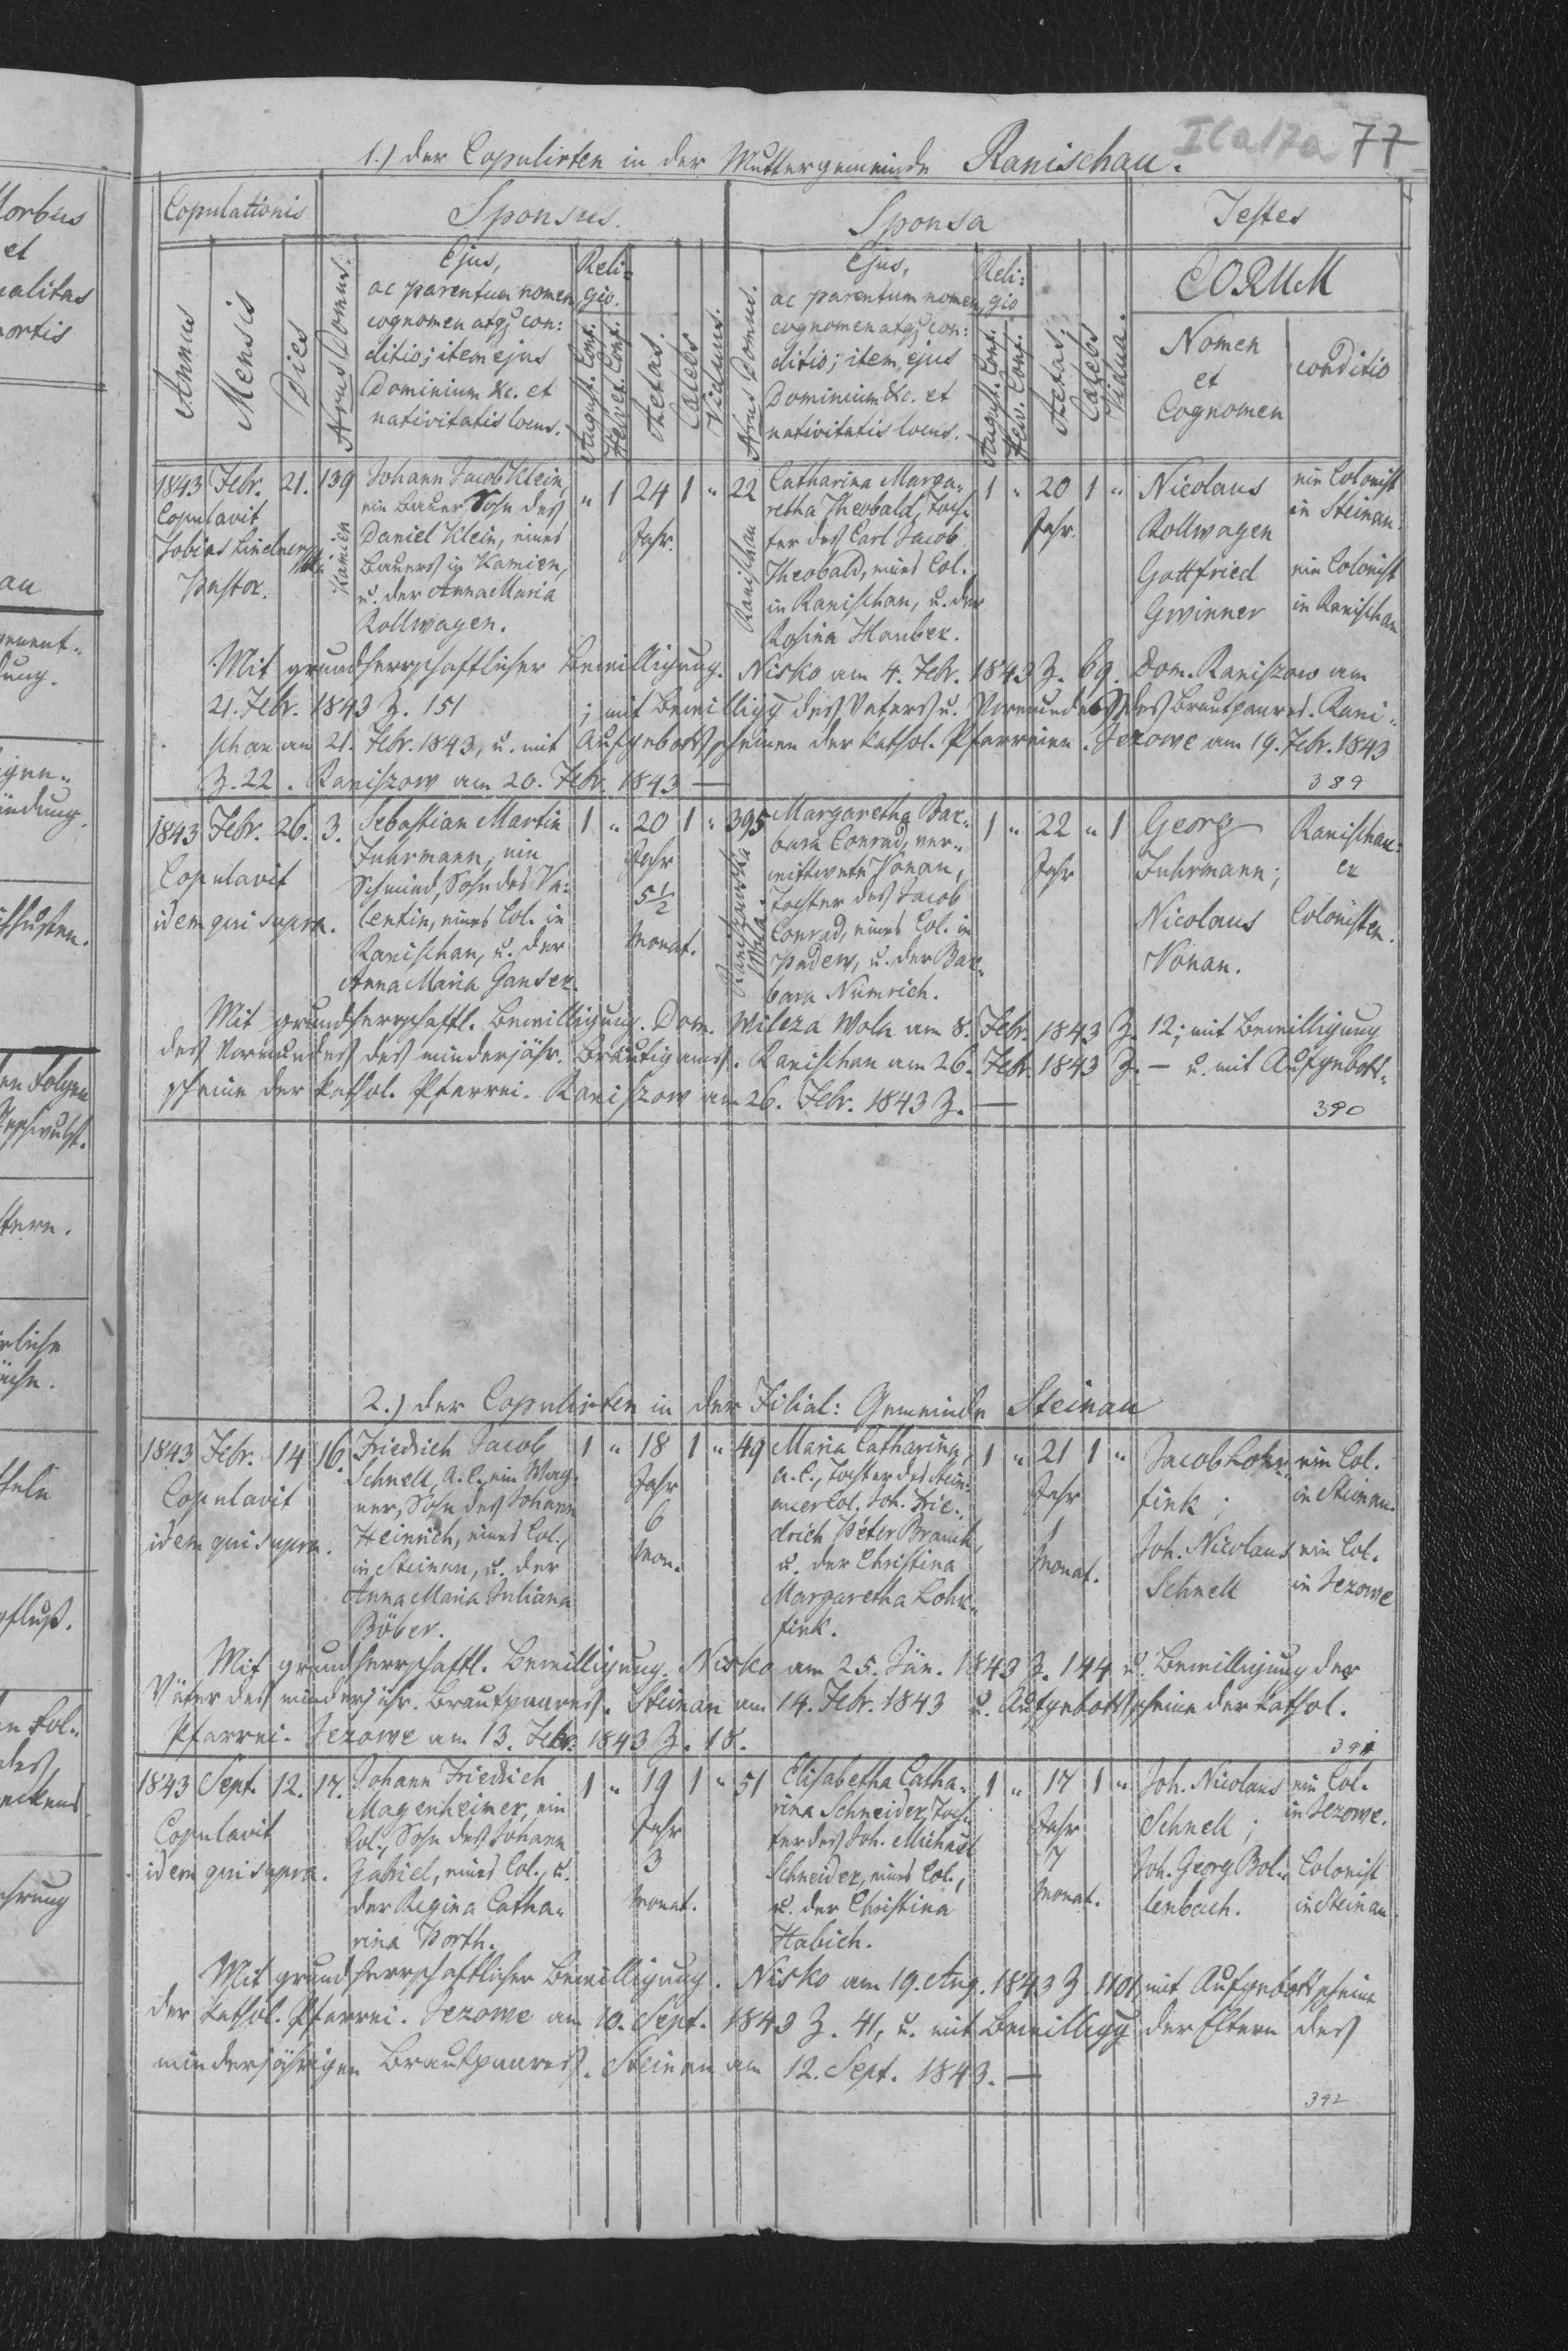 ICa17a 77
1.) der Copulirten in der Muttergemeinde Ranischau.
Copulationis
Sponsus.
Sponsa
Testes
Annus
Mensis
Dies
Nrus Domus.
Ejus,
ac parentum nomen
cognomen atq; con:
ditio; item ejus
Dominium &c. et
nativitatis locus.
Reli:
gio.
August. Conf.
Helvet. Conf.
Aetas
Caelebs
Viduus.
Nrus Domus.
Ejus,
ac parentum nomen,
cognomen atq; con:
ditio; item, ejus
Dominium &c. et
nativitatis locus.
Reli:
gio
August. Conf.
Helv. Conf.
Aetas.
Caelebs
Vidua.
CORUM
Nomen
et
Cognomen
conditio
1843 Febr. 21.
Copulavit
Tobias Lindner
Pastor.
139
Kamien
Johann Jacob Klein,
ein Bauer Sohn des
Daniel Klein, eines
Bauers in Kamien,
u. der Anna Maria
Rollwagen.
" 1 24 1 "
Jahr.
22
Ranischau
Catharina Marga„
retha Theobald, Toch„
ter des Carl Jacob
Theobald, eines Col.
in Ranischau, u. der
Rosina Hauber.
1 " 20 1 "
Jahr.
Nicolaus
Rollwagen
Gottfried
Gwinner
ein Colonist
in Steinau.
ein Colonist
in Ranischau
Mit grundherrschaftlicher Bewilligung. Nisko am 4. Febr. 1843 Z. 69. Dom. Raniszow am
21. Febr. 1843 Z. 151 ; mit Bewilligg des Vaters u. Vormundes des Brautpaares. Rani„
schau am 21. Febr. 1843, u. mit Aufgebottsscheinen der kathol. Pfarreien. Jezowe am 19. Febr. 1843
Z. 22. Raniszow am 20. Febr. 1843 —
389
1843 Febr. 26.
Copulavit
idem qui supra.
3.
Sebastian Martin
Fuhrmann, ein
Schmied, Sohn des Va„
lentin, eines Col. in
Ranischau, u. der
Anna Maria Ganser.
1 " 20 1 "
Jahr
5½
Monat.
395
Raniszowska
Wola.
Margaretha Bar„
bara Conrad, ver„
wittwete Vonau,
Tochter des Jacob
Conrad, eines Col. in
Padew, u. der Bar„
bara Numrich.
1 " 22 " 1
Jahr
Georg
Fuhrmann;
Nicolaus
Vonau.
Ranischau:
er
Colonisten.
Mit grundherrschaftl. Bewilligung. Dom. Wilcza Wola am 8. Febr. 1843 Z. 12; mit Bewilligung
des Vormundes des minderjähr. Bräutigams. Ranischau am 26. Febr. 1843 Z. — u. mit Aufgebotts„
scheine der kathol. Pfarrei. Raniszow am 26. Febr. 1843 Z. —
390
2.) der Copulirten in der Filial: Gemeinde Steinau
1843 Febr. 14
Copulavit
idem qui supra.
16.
Friedrich Jacob
Schnell, A. C., ein Wag„
ner, Sohn des Johann
Heinrich, eines Col.,
in Steinau, u. der
Anna Maria Juliana
Böber.
1 " 18 1 "
Jahr
6
Mon.
49
Maria Catharina,
A. C., Tochter des Stein:
auer Col. Joh. Frie„
drich Peter Brauch,
u. der Christina
Margaretha Lohr„
fink.
1 " 21 1 "
Jahr
1
Monat.
Jacob Lohr„
fink;
Joh. Nicolaus
Schnell
ein Col.
in Steinau.
ein Col.
in Jezowe
Mit grundherrschaftl. Bewilligung. Nisko am 25. Jän. 1843 Z. 144 u. Bewilligung der
Väter des minderjähr. Brautpaares. Steinau am 14. Febr. 1843 u. Aufgebottsscheine der kathol.
Pfarrei. Jezowe am 13. Febr. 1843 Z. 18.
391
1843 Sept. 12.
Copulavit
idem qui supra.
17.
Johann Friedrich
Magenheimer, ein
Col., Sohn des Johann
Gabriel, eines Col., u.
der Regina Catha„
rina Porth.
1 " 19 1 "
Jahr
3
Monat.
51
Elisabetha Catha„
rina Schneider, Toch„
ter des Joh. Michael
Schneider, eines Col.,
u. der Christina
Habich.
1 " 17 1 "
Jahr
7
Monat.
Joh. Nicolaus
Schnell;
Joh. Georg Bol„
lenbach.
ein Col.
in Jezowe.
Colonist
in Steinau.
Mit grundherrschaftlicher Bewilligung. Nisko am 19. Aug. 1843 Z. 1101, mit Aufgebottsscheine
der kathol. Pfarrei. Jezowe am 10. Sept. 1843 Z. 41, u. mit Bewilligg der Eltern des
minderjährigen Brautpaares. Steinau am 12. Sept. 1843. —
392